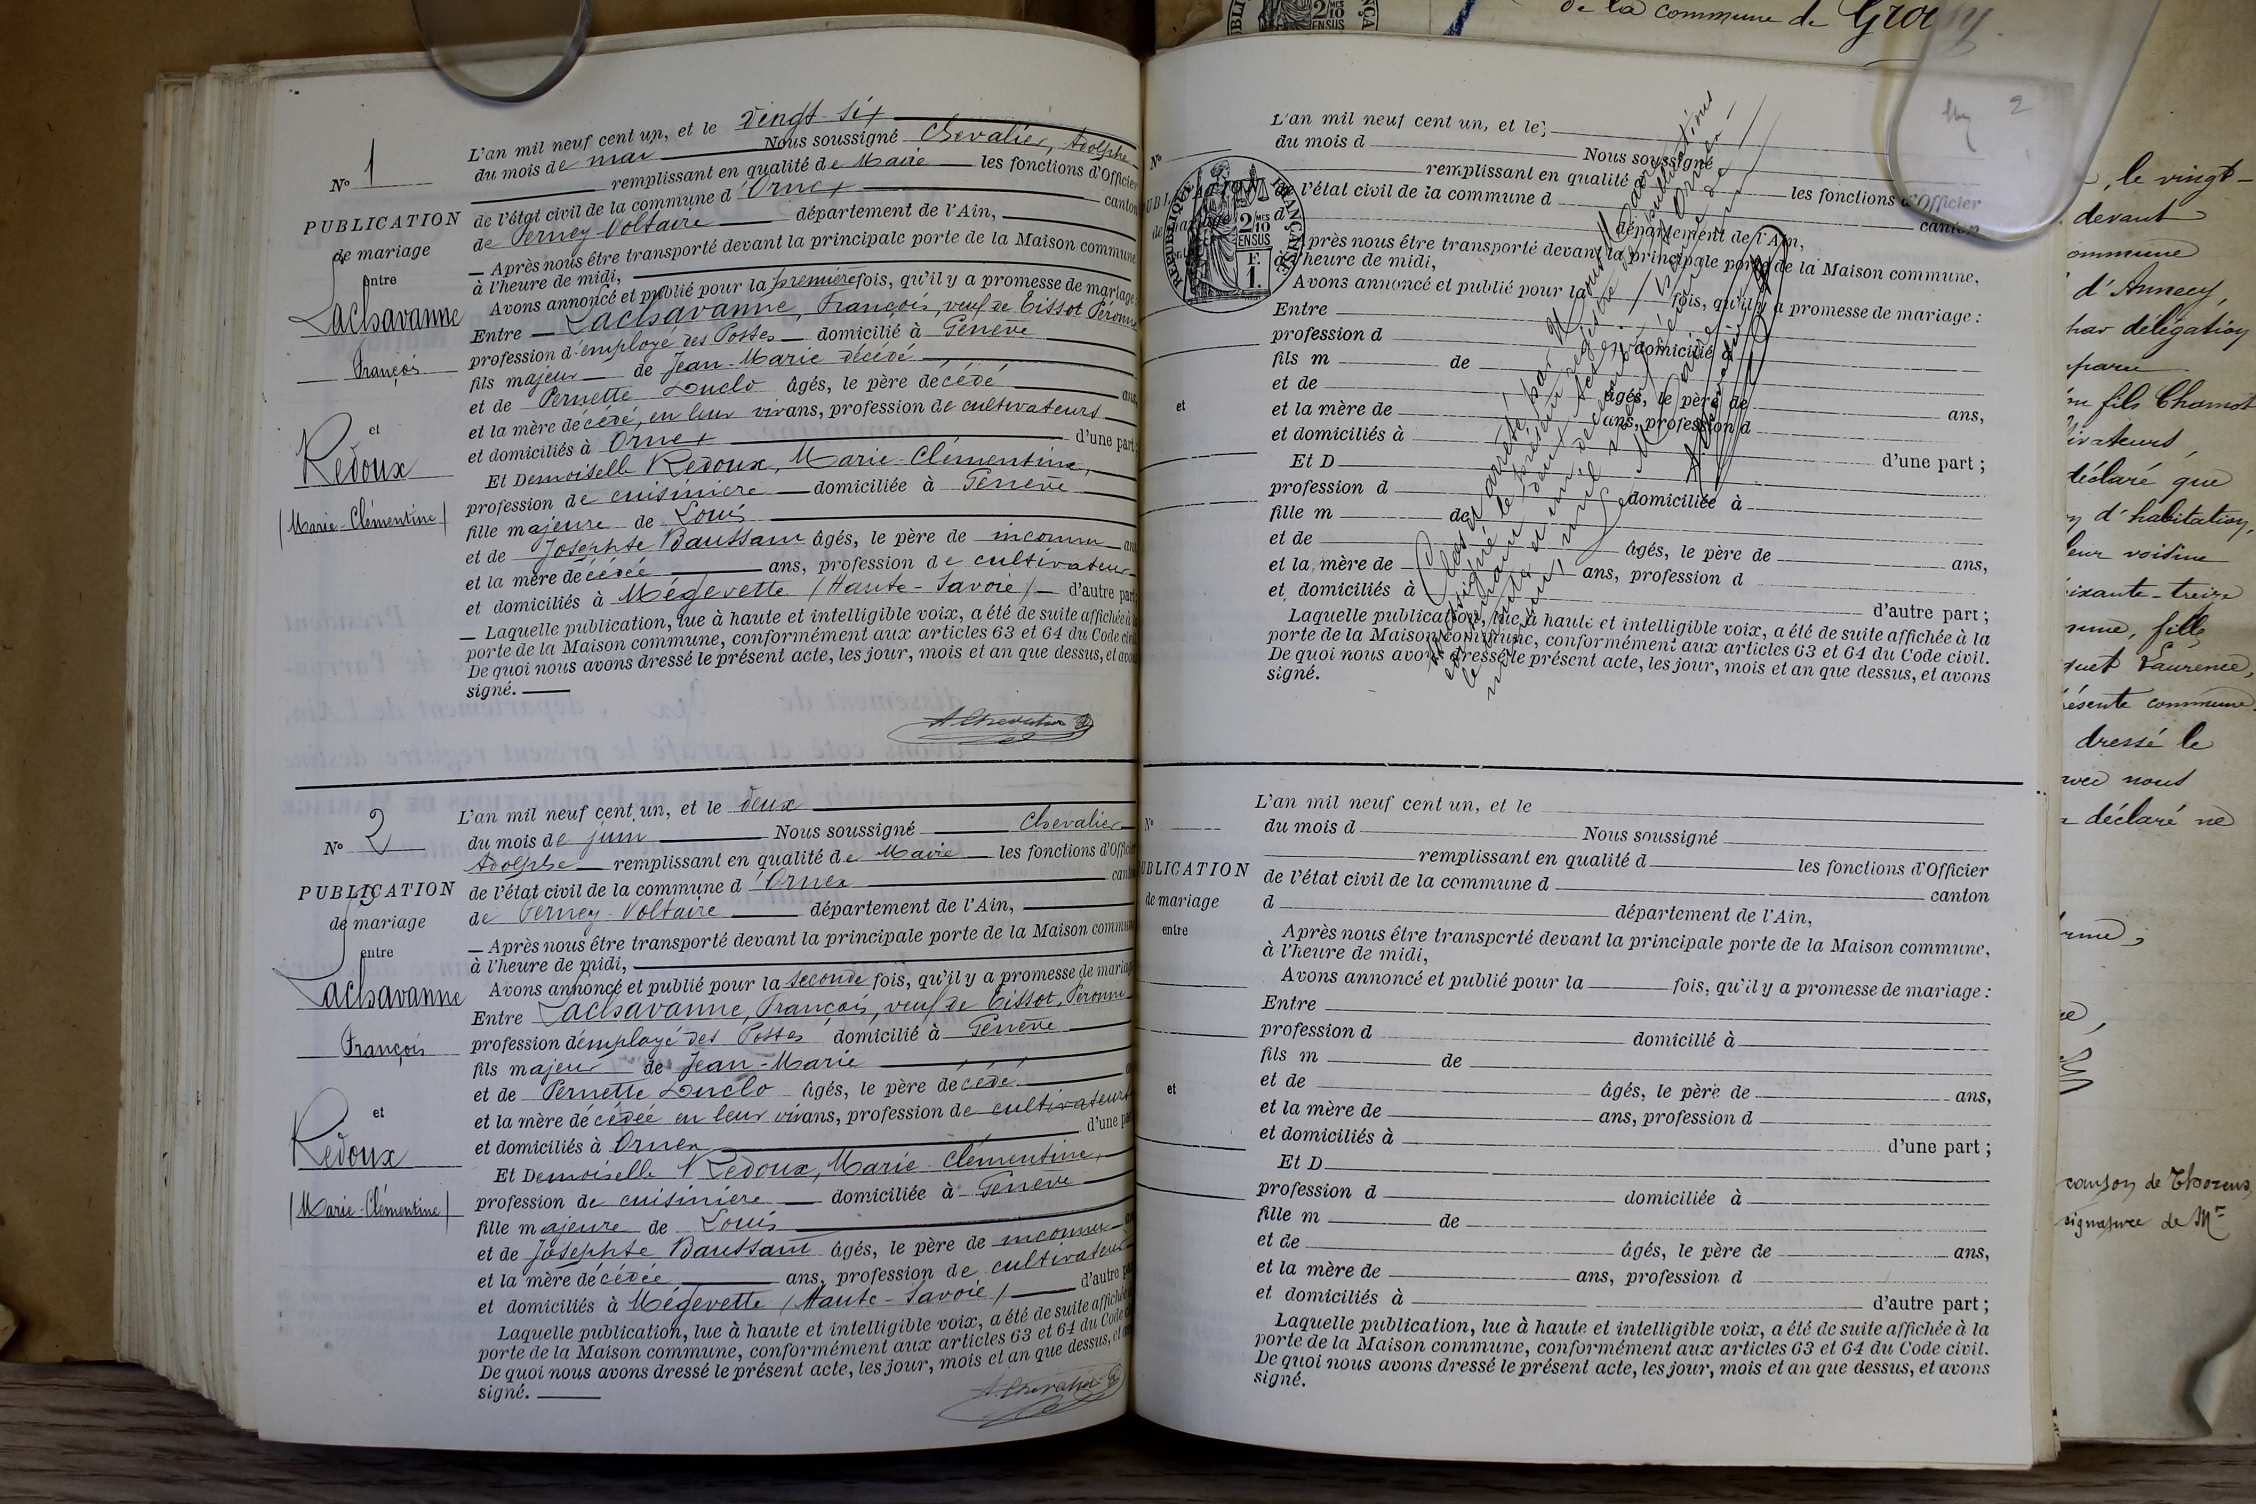 de la commune de Groisy
N° 1
PUBLICATION
de mariage
entre
Lachavanne
François
et
Redoux
(Marie-Clémentine)
L'an mil neuf cent un, et le vingt-six
du mois de mai Nous soussigné Chevalier, Adolphe
remplissant en qualité de Maire les fonctions d'Officier
de l'état civil de la commune d'Ornex canton
de Ferney-Voltaire département de l'Ain,
— Après nous être transporté devant la principale porte de la Maison commune
à l'heure de midi,
Avons annoncé et publié pour la première fois, qu'il y a promesse de mariage:
Entre Lachavanne, François, veuf de Tissot Péronne
profession d'employé des Postes domicilié à Genève
fils majeur de Jean-Marie décédé
et de Pernette Duclo âgés, le père de cédé ans,
et la mère de cédé, en leur vivans, profession de cultivateurs
et domiciliés à Ornex d'une part;
Et Demoiselle Redoux, Marie-Clémentine,
profession de cuisinière domiciliée à Genève
fille majeure de Louis
et de Josephte Baussant âgés, le père de inconnu ans
et la mère de cédée ans, profession de cultivateur
et domiciliés à Mégevette (Haute-Savoie) d'autre part
— Laquelle publication, lue à haute et intelligible voix, a été de suite affichée à la
porte de la Maison commune, conformément aux articles 63 et 64 du Code civil
De quoi nous avons dressé le présent acte, les jour, mois et an que dessus, et avons
signé.
A Chevalier
N° 2
PUBLICATION
de mariage
entre
Lachavanne
François
et
Redoux
(Marie-Clémentine)
L'an mil neuf cent un, et le deux
du mois de juin Nous soussigné Chevalier
Adolphe remplissant en qualité de Maire les fonctions d'Officier
de l'état civil de la commune d'Ornex canton
de Ferney-Voltaire département de l'Ain,
— Après nous être transporté devant la principale porte de la Maison commune
à l'heure de midi,
Avons annoncé et publié pour la seconde fois, qu'il y a promesse de mariage
Entre Lachavanne, François, veuf de Tissot, Péronne
profession d'employé des Postes domicilié à Genève
fils majeur de Jean-Marie
et de Pernette Duclo âgés, le père de cédé
et la mère de cédée en leur vivans, profession de cultivateurs
et domiciliés à Ornex d'une part
Et Demoiselle Redoux, Marie-Clémentine,
profession de cuisinière domiciliée à Genève
fille majeure de Louis
et de Josephte Baussant âgés, le père de inconnu
et la mère de cédée ans, profession de cultivateur
et domiciliés à Mégevette (Haute-Savoie) d'autre part
Laquelle publication, lue à haute et intelligible voix, a été de suite affichée
porte de la Maison commune, conformément aux articles 63 et 64 du Code
De quoi nous avons dressé le présent acte, les jour, mois et an que dessus, et
signé.
A Chevalier
N°
PUBLICATION
de mariage
et
RÉPUBLIQUE FRANÇAISE
2 MES
10
EN SUS
F.
1.
L'an mil neuf cent un, et le
du mois d Nous soussigné
remplissant en qualité d les fonctions d'Officier
de l'état civil de la commune d canton
d département de l'Ain,
Après nous être transporté devant la principale porte de la Maison commune,
à l'heure de midi,
Avons annoncé et publié pour la fois, qu'il y a promesse de mariage :
Entre
profession d domicilié à
fils m de
et de âgés, le père de ans,
et la mère de ans, profession d
et domiciliés à d'une part ;
Et D
profession d domiciliée à
fille m de
et de âgés, le père de ans,
et la mère de ans, profession d
et domiciliés à d'autre part ;
Laquelle publication, lue à haute et intelligible voix, a été de suite affichée à la
porte de la Maison commune, conformément aux articles 63 et 64 du Code civil.
De quoi nous avons dressé le présent acte, les jour, mois et an que dessus, et avons
signé.
Clos et arrêté par Nous Maire
soussigné le présent registre de publications
N°
PUBLICATION
de mariage
entre
et
L'an mil neuf cent un, et le
du mois d Nous soussigné
remplissant en qualité d les fonctions d'Officier
de l'état civil de la commune d canton
d département de l'Ain,
Après nous être transporté devant la principale porte de la Maison commune,
à l'heure de midi,
Avons annoncé et publié pour la fois, qu'il y a promesse de mariage :
Entre
profession d domicilié à
fils m de
et de âgés, le père de ans,
et la mère de ans, profession d
et domiciliés à d'une part ;
Et D
profession d domiciliée à
fille m de
et de âgés, le père de ans,
et la mère de ans, profession d
et domiciliés à d'autre part ;
Laquelle publication, lue à haute et intelligible voix, a été de suite affichée à la
porte de la Maison commune, conformément aux articles 63 et 64 du Code civil.
De quoi nous avons dressé le présent acte, les jour, mois et an que dessus, et avons
signé.
2
, le vingt-
devant
commune
d'Annecy,
par délégation
paru
fils Chamot
tivateurs,
déclaré que
d'habitation,
leur voisine
ixante-treize
fille
quet Laurence,
résente commune.
dressé le
avec nous
déclaré ne
canton de Thorens
signature de Mr